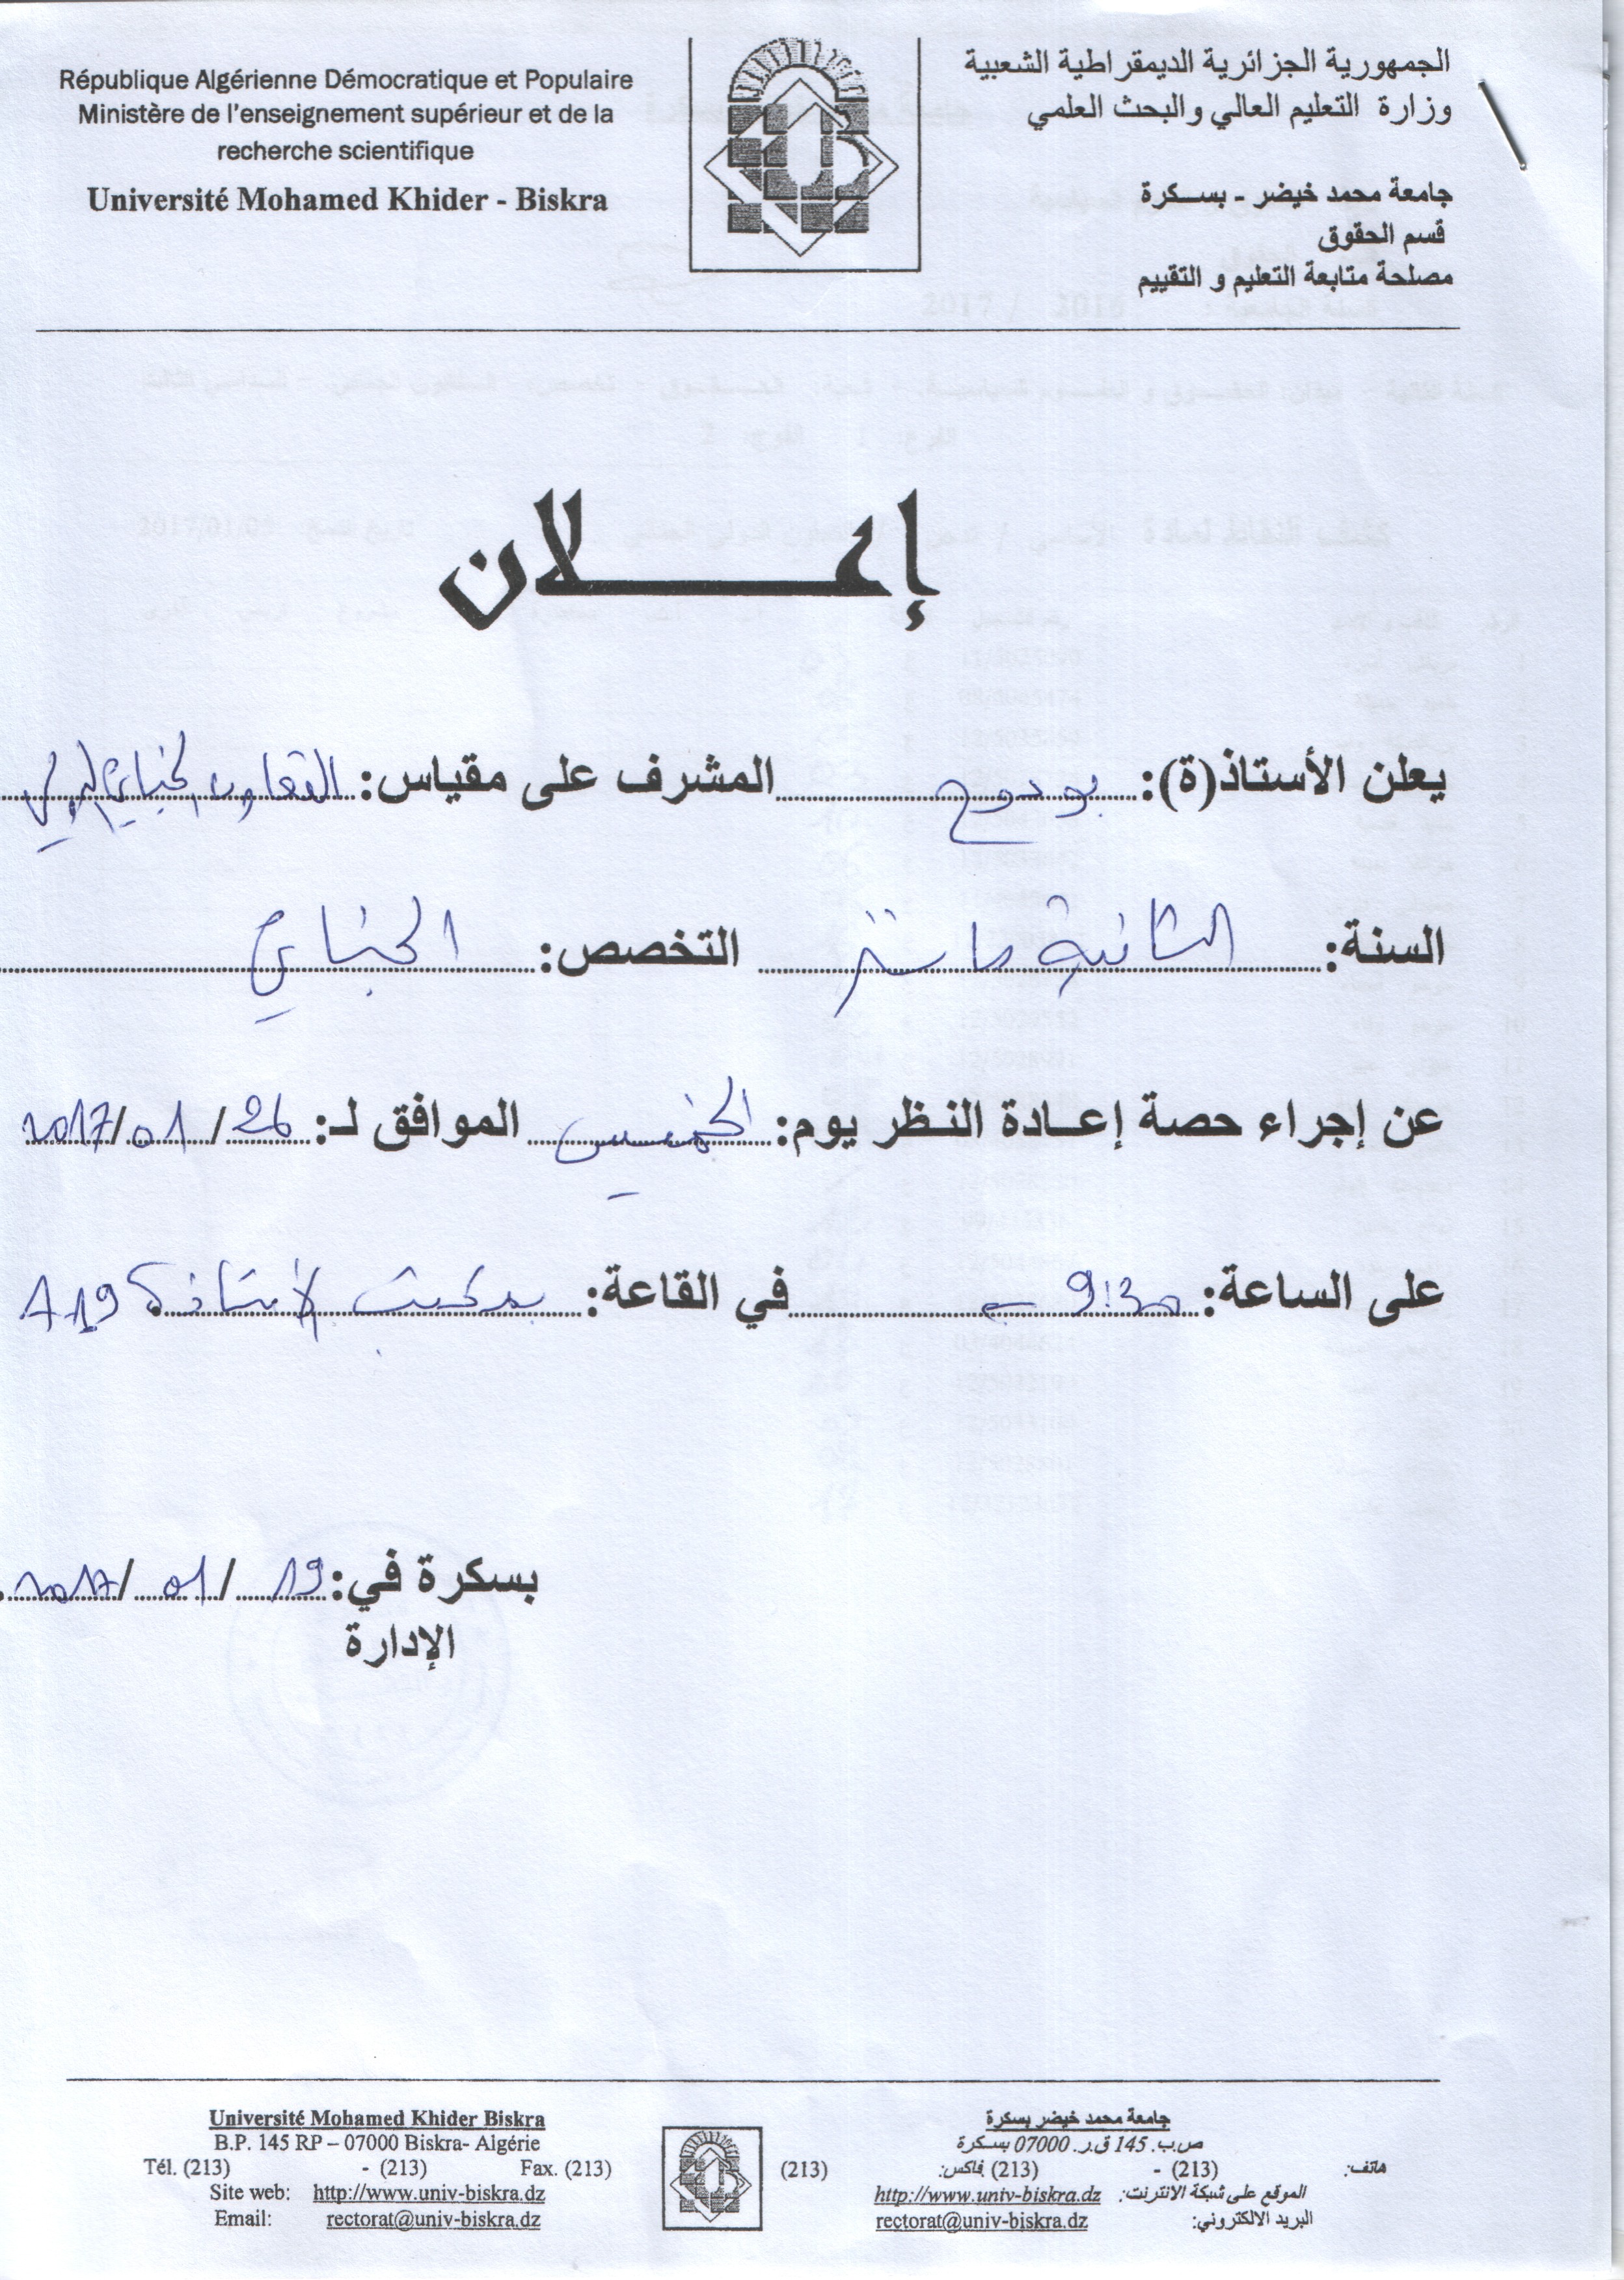 الجمهورية الجزائرية الديمقراطية الشعبية
وزارة التعليم العالي والبحث العلمي
جامعة محمد خيضر - بسكرة
قسم الحقوق
مصلحة متابعة التعليم و التقييم
République Algérienne Démocratique et Populaire
Ministère de l'enseignement supérieur et de la
recherche scientifique
Université Mohamed Khider - Biskra
إعلان
يعلن الأستاذ(ة): المشرف على مقياس: التعاون الجنائي الدولي
السنة: الثانية ماستر التخصص: الجنائي
عن إجراء حصة إعادة النظر يوم: الخميس الموافق لـ: 26/01/2017
على الساعة: 9:30 في القاعة: بمكتب الأساتذة A19
بسكرة في: 19/01/2017
الإدارة
جامعة محمد خيضر بسكرة
ص.ب. 145 ق.ر. 07000 بسكرة
هاتف: (213) - (213) فاكس: (213)
الموقع على شبكة الانترنت: http://www.univ-biskra.dz
البريد الالكتروني: rectorat@univ-biskra.dz
Université Mohamed Khider Biskra
B.P. 145 RP – 07000 Biskra- Algérie
Tél. (213) - (213) Fax. (213)
Site web: http://www.univ-biskra.dz
Email: rectorat@univ-biskra.dz